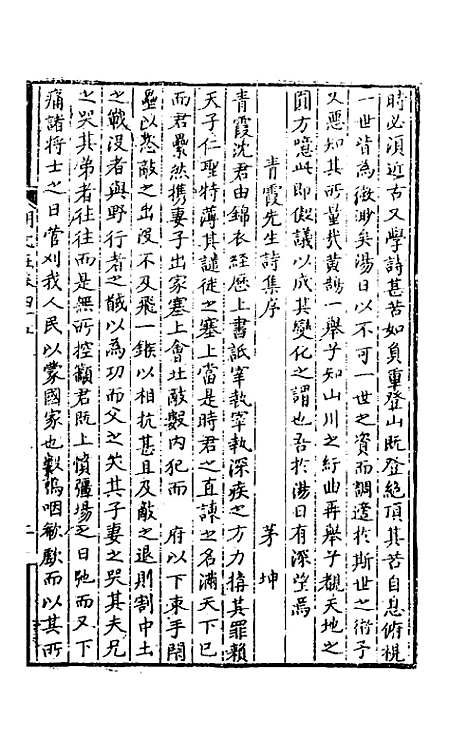 時必須近古又學詩甚苦如負重登山既登絕頂其苦自息俯視
一世皆為微渺矣湯日以不可一世之資而調適於斯世之衡子
又惡知其所量哉黃鵠一舉子知山川之紆曲再舉子覩天地之
圓方噫此即儗議以成其變化之謂也吾於湯日有深望焉
青霞先生詩集序 茅坤
青霞沈君由錦衣經歷上書詆宰執宰執深疾之方力搆其罪賴
天子仁聖特薄其譴徙之塞上當是時君之直諫之名滿天下已
而君纍然携妻子出家塞上會北敵數內犯而 府以下束手閉
壘以恣敵之出沒不及飛一鏃以相抗甚且及敵之退則割中土
之戰沒者與野行者之馘以為功而父之哭其子妻之哭其夫兄
之哭其弟者往往而是無所控籲君既上憤疆場之日弛而又下
痛諸將士之日菅刈我人民以蒙國家也數嗚咽欷歔而以其所
明文在卷四十五 二